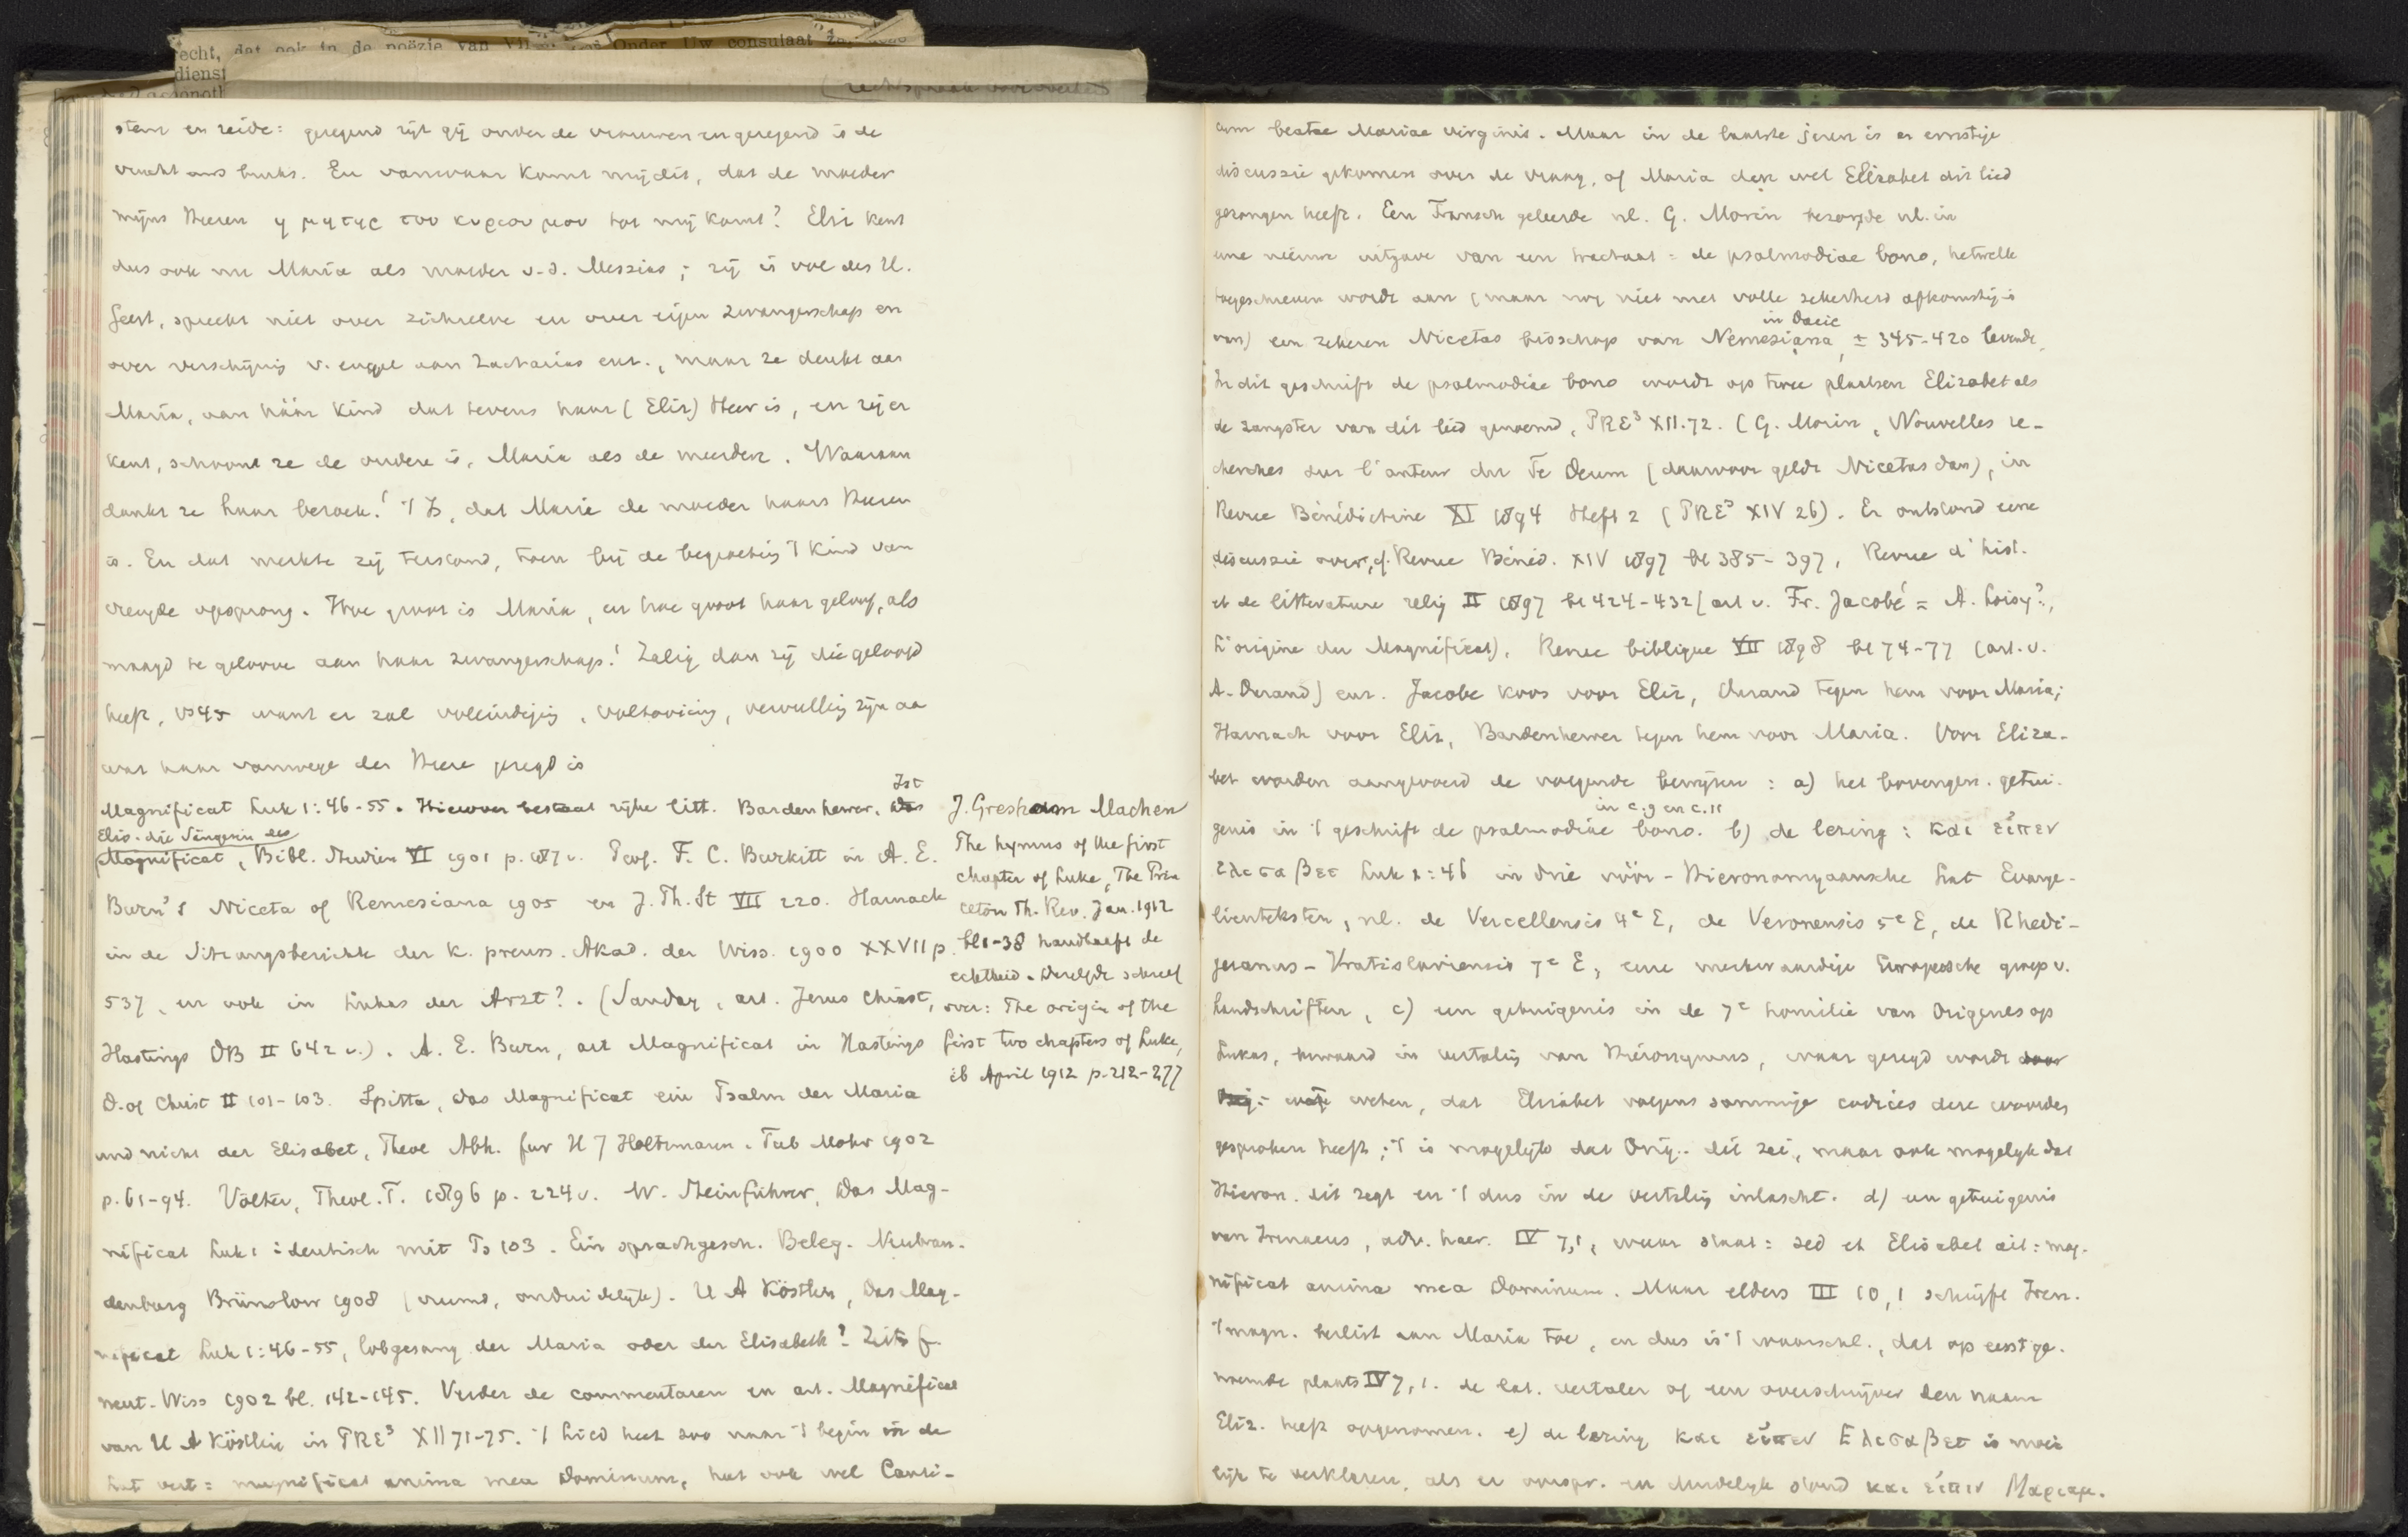 echt, dat ook in de poëzie van
dienst
stem en zeide: gezegend zijt gij onder de vrouwen en gezegend is de
vrucht uws buiks. En vanwaar komt mij dit, dat de moeder
mijns Heeren η μητηρ του κυριου μου tot mij komt? Eliz kent
dus ook nu Maria als moeder v.d. Messias; zij is vol des H.
Geest, spreekt niet over zichzelve en over eigen zwangerschap en
over verschijnig v. engel aan Zacharias enz., maar ze denkt aan
Maria, aan háár kind dat tevens haar (Eliz) Heer is, en zij er
kent, schoone ze de oudere is, Maria als de meerdere. Waaraan
dankt ze haar bezoek! 't Is, dat Maria de moeder haars Heeren
is. En dat merkte zij terstond, toen bij de begroetig 't kind van
vreugde opsprong. Hoe groot is Maria, en hoe groot haar geloof, als
maagd te geloove aan haar zwangerschap! Zalig dan zij die geloofd
heeft, vs 45 want er zal voleindigig, voltooiing, vervullig zijn aa
wat haar vanwege den Heere gezegd is
Magnificat Luk 1:46-55. Hierover bestaat rijke litt. Bardenhewer, Ist
Elis. die Sängerin des
Magnificat, Bibl. Studien VI 1901 p. 187 v. Prof. F. C. Burkitt in A. E.
Burn's Niceta of Remesiana 1905 en J. Th. St VII 220. Harnack
in de Sitzungsberichte der K. preuss. Akad. der Wiss. 1900 XXVII p.
537, en ook in Lukas der Arzt?. (Sanday, art. Jesus Christ,
Hastings DB II 642 v.). A. E. Burn, art Magnificat in Hastings
D. of Christ II 101-103. Spitta, Das Magnificat ein Psalm der Maria
und nicht der Elisabet, Theol Abh. fur H J Holtzmann. Tub Mohr 1902
p. 61-94. Völter, Theol. T. 1896 p. 224 v. W. Steinführer, Das Mag-
nificat Luk 1 identisch mit Ps 103. Ein sprachgesch. Beleg. Neubran-
denburg Brünslow 1908 (vreemd, onduidelijk). H A Köstlin, Das Mag-
nificat Luk 1:46-55, lobgesang der Maria oder der Elisabeth? Zeits f.
neut. Wiss 1902 bl. 142-145. Verder de commentaren en art. Magnificat
van H A Köstlin in PRE³ XII 71-75. 't Lied heet zoo naar 't begin in de
Lat vert: magnificat anima mea Dominum, het ook wel Canti-
J. Gresham Machen
The hymns of the first
chapter of Luke, The Prin
ceton Th. Rev. Jan. 1912
bl 1-38 handhaeft de
echtheid. Dezelfde schreef
over: The origin of the
first two chapters of Luke,
ib April 1912 p. 212-277
cum beatae Mariae virginis. Maar in de laatste jaren is er ernstige
discussie gekomen over de vraag, of Maria dan wel Elizabet dit lied
gezongen heeft. Een Fransch geleerde nl. G. Morin bezorgde nl. in
eene nieuwe uitgave van een tractaat: de psalmodiae bono, hetwelk
toegeschreven wordt aan (maar nog niet met volle zekerheid afkomstig is
in Dacie
van) een zekeren Nicetas bisschop van Nemesiana, ± 345-420 levende.
In dit geschrift de psalmodiae bono wordt op twee plaatsen Elizabet als
de zangster van dit lied genoemd, PRE³ XII.72. (G. Morin, Nouvelles re-
cherches sur l'auteur du Te Deum (daarvoor geldt Nicetas dan), in
Revue Bénédictine XI 1894 Heft 2 (PRE³ XIV 26). Er ontstond eene
discussie over, cf. Revue Bénéd. XIV 1897 bl 385-397, Revue d'hist.
et de litterature relig II 1897 bl 424-432 (art v. Fr. Jacobé = A. Loisy?,
L'origine du Magnificat), Revue biblique VII 1898 bl 74-77 (art. v.
A. Durand) enz. Jacobe koos voor Eliz, Durand tegen hem voor Maria;
Harnack voor Eliz, Bardenhewer tegen hem voor Maria. Voor Eliza-
bet worden aangevoerd de volgende bewijzen: a) het bovengen. getui-
in c. 9 en c. 11
genis in 't geschrift de psalmodiae bono. b) de lezing: και είπεν
Ελισαβετ Luk 1:46 in drie vóór-Hieronomyaansche Lat Evange-
lientekste, nl. de Vercellensis 4e E, de Veronensis 5e E, de Rhedi-
geranus-Vratislaviensis 7e E, eene merkwaardige Europeesche groep v.
handschriften, c) een getuigenis in de 7e homilie van Origenes op
Lukas, bewaard in vertalig van Hiëronymus, waar gezegd wordt
weten, dat Elizabet volgens sommige codices deze woorden
gesproken heeft; 't is mogelijk dat Orig. dit zei, maar ook mogelyk dat
Hieron. dit zegt en 't dus in de vertalig inlascht. d) een getuigenis
van Irenaeus, adv. haer. IV 7,1, waar staat: sed et Elisabet ait: mag-
nificat anima mea Dominum. Maar elders III 10,1 schrijft Iren.
't magn. beslist aan Maria toe, en dus is 't waarschl., dat op eerstge-
noemde plaats IV 7,1. de lat. vertaler of een overschrijver den naam
Eliz. heeft opgenomen. e) de lezing και είπεν Ελισαβετ is moei
lijk te verklaren, als er oorspr. en duidelyk stond και είπεν Μαριαμ.